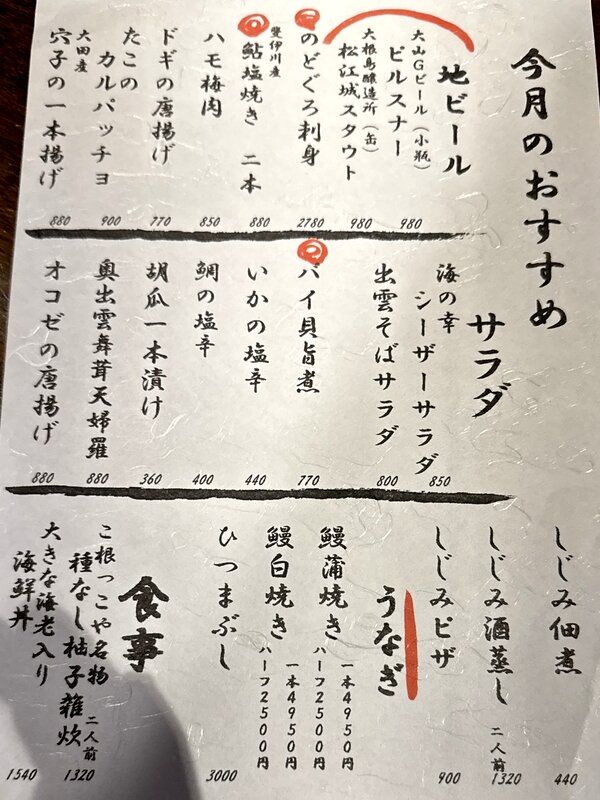 今月のおすすめ
地ビール
大山Gビール(小瓶)
ピルスナー
980
大根島醸造所(缶)
松江城スタウト
980
のどぐろ刺身
2780
斐伊川産
鮎塩焼き 二本
880
ハモ梅肉
850
ドギの唐揚げ
770
たこの
カルパッチョ
900
大田産
穴子の一本揚げ
880
サラダ
海の幸
シーザーサラダ
850
出雲そばサラダ
800
バイ貝旨煮
770
いかの塩辛
440
鯛の塩辛
400
胡瓜一本漬け
360
奥出雲舞茸天婦羅
880
オコゼの唐揚げ
880
しじみ佃煮
440
しじみ酒蒸し 二人前
1320
しじみピザ
900
うなぎ
鰻蒲焼き
一本4950円
ハーフ2500円
鰻白焼き
一本4950円
ハーフ2500円
ひつまぶし
3000
食事
こ根っこや名物
種なし柚子雑炊 二人前
1320
大きな海老入り
海鮮丼
1540